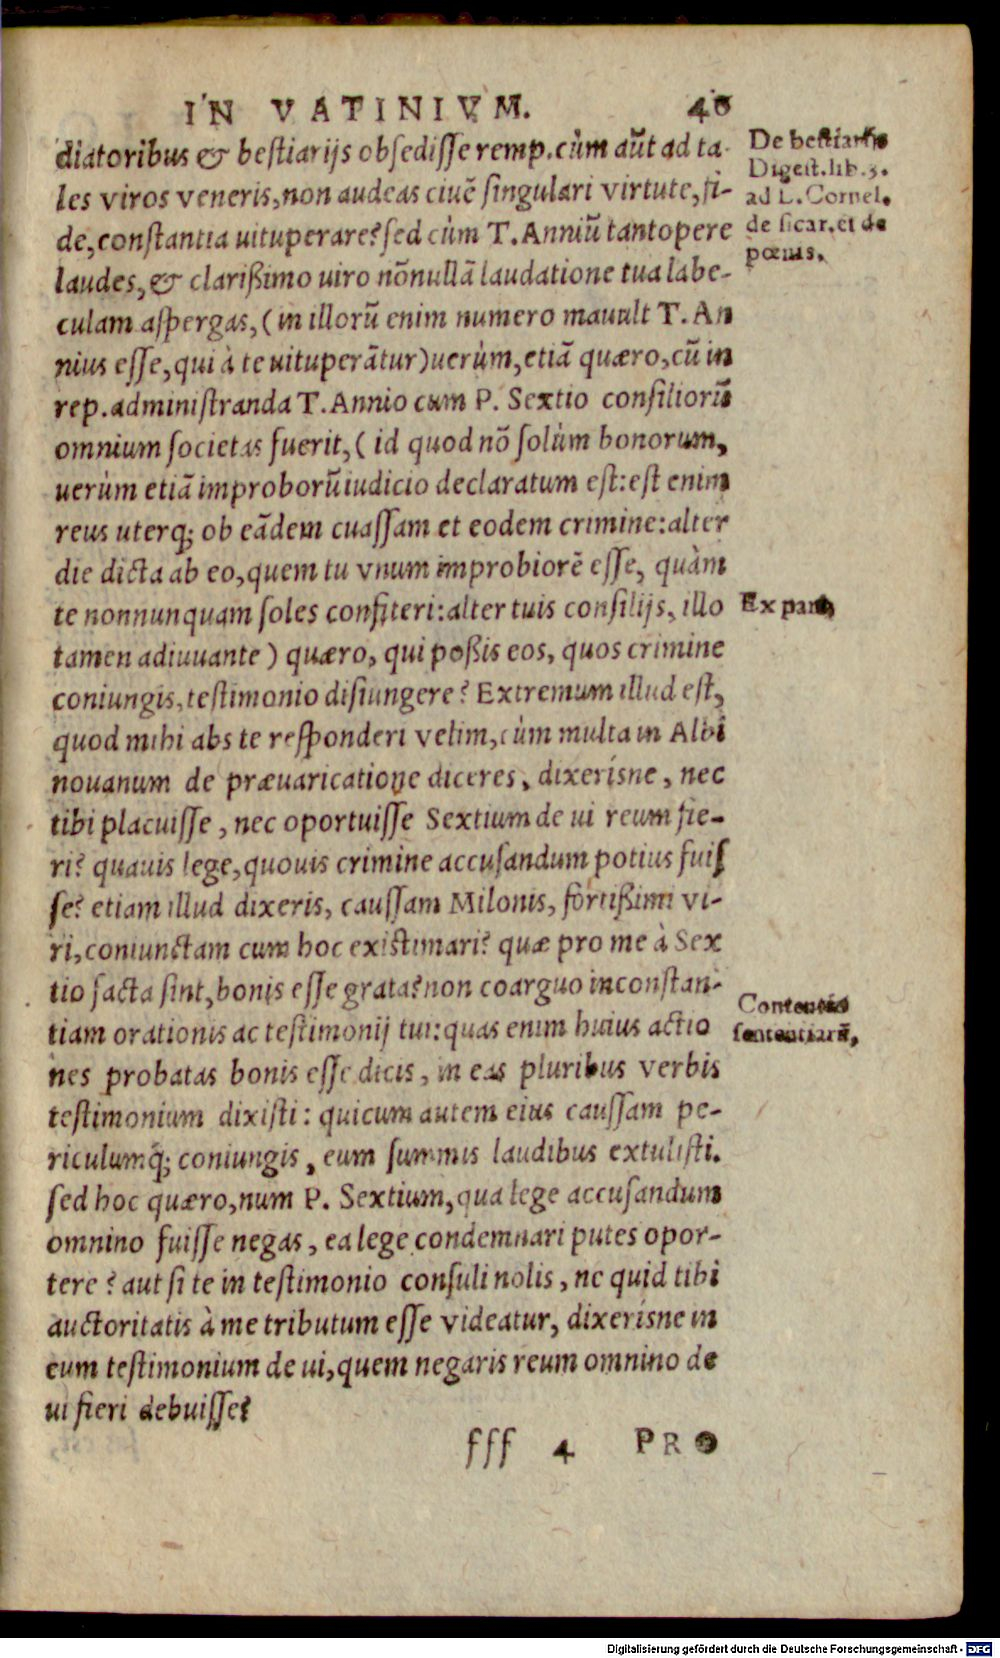 IN VATINIVM.
diatoribus & bestiarijs obsedisse remp.cùm aũt ad ta-
les viros veneris,non audeas ciuẽ singulari virtute,fi-
de,constantia uituperare?sed cùm T.Anniũ tantopere
laudes,& clarißimo uiro nõnullã laudatione tua labe-
culam aspergas,(in illorũ enim numero mauult T.An
nius esse,qui à te uituperãtur)uerùm,etiã quæro,cũ in
rep.administranda T.Annio cum P. Sextio consiliorũ
omnium societas fuerit,(id quod nõ solùm bonorum,
uerùm etiã improborũ iudicio declaratum est:est enim
reus uterq; ob eãdem cuassam et eodem crimine:alter
die dicta ab eo,quem tu vnum improbiorẽ esse, quàm
te nonnunquam soles confiteri:alter tuis consilijs, illo
tamen adiuuante) quæro, qui poßis eos, quos crimine
coniungis,testimonio disiungere? Extremum illud est,
quod mihi abs te responderi velim,cùm multa in Albi
nouanum de præuaricatione diceres, dixerísne, nec
tibi placuisse, nec oportuisse Sextium de ui reum fie-
ri? quauis lege,quouis crimine accusandum potius fuis
se? etiam illud dixeris, caussam Milonis, fortißimi vi-
ri,coniunctam cum hoc existimari? quæ pro me à Sex
tio facta sint,bonis esse grata?non coarguo inconstan-
tiam orationis ac testimonij tui:quas enim huius actio
nes probatas bonis esse dicis, in eas pluribus verbis
testimonium dixisti: quicum autem eius caussam pe-
riculumq́; coniungis, eum summis laudibus extulisti.
sed hoc quæro,num P. Sextium,qua lege accusandum
omnino fuisse negas, ea lege condemnari putes opor-
tere? aut si te in testimonio consuli nolis, ne quid tibi
auctoritatis à me tributum esse videatur, dixerísne in
eum testimonium de ui,quem negaris reum omnino de
ui fieri debuisse?
fff 4 PRO
De bestiarijs
Digest.lib.3.
ad L.Cornel.
de sicar.et de
pœnis.
Ex
Contentio
sententiarũ,
Digitalisierung gefördert durch die Deutsche Forschungsgemeinschaft - DFG